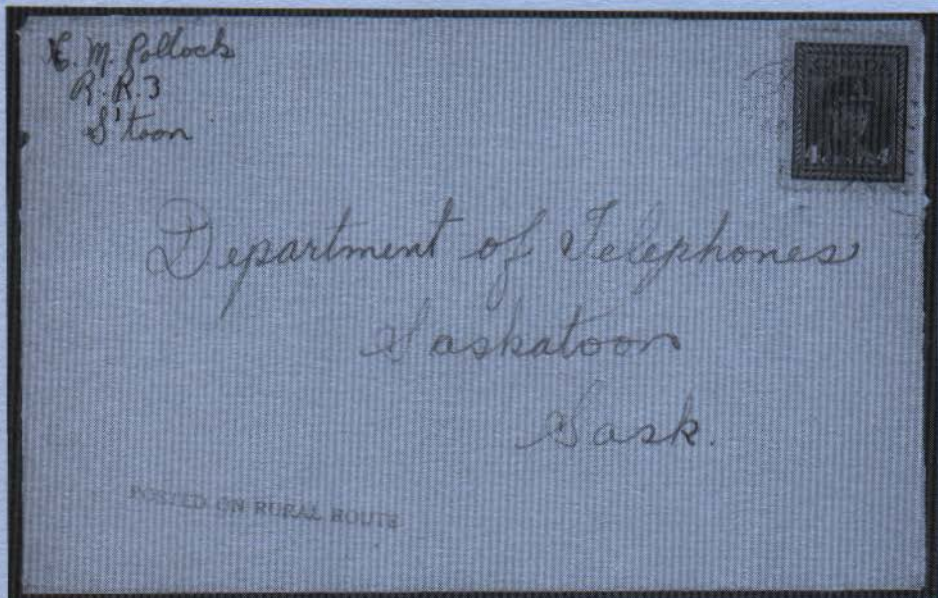 M. Pollock
R.R.3
S'toon
CANADA
4 4
Department of Telephones
Saskatoon
Sask.
POSTED ON RURAL ROUTE